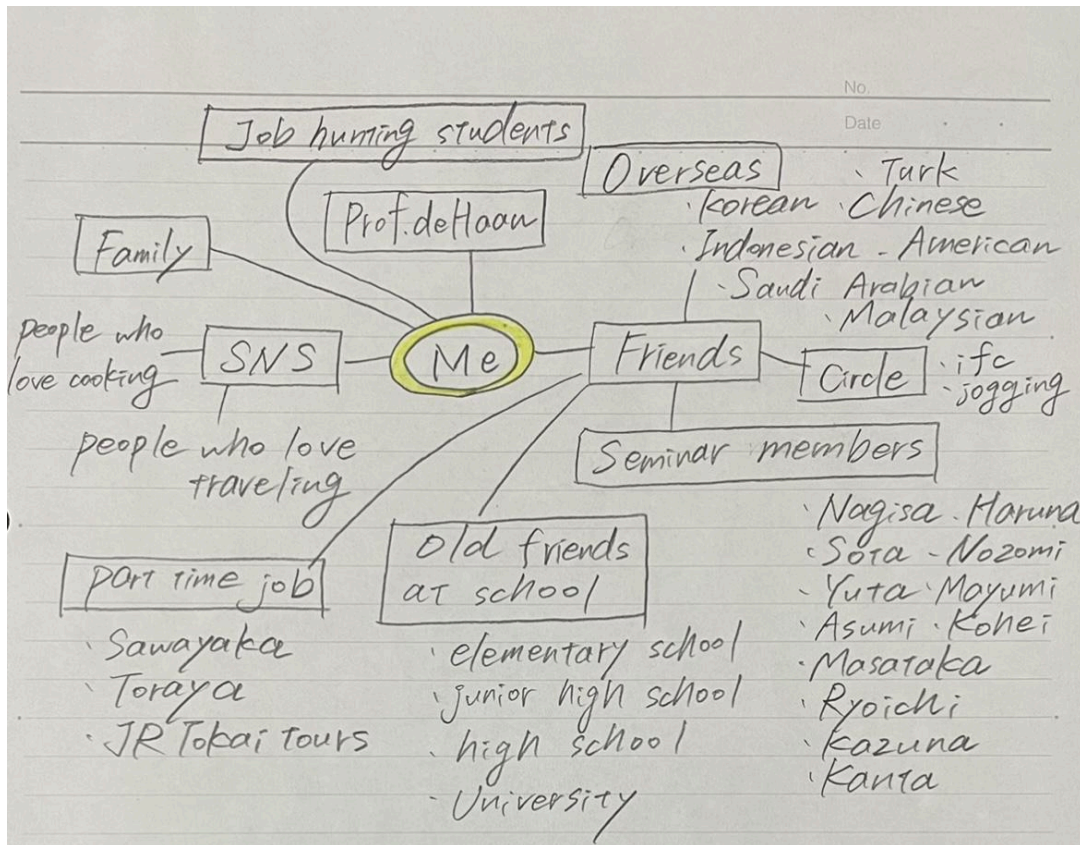 No.
Date
Job hunting students
Prof. deHaan
Family
Overseas
・Turk
・Korean ・Chinese
・Indonesian - American
・Saudi Arabian
・Malaysian
people who
love cooking
SNS
Me
Friends
Circle
・ifc
・jogging
people who love
traveling
Seminar members
・Nagisa ・Haruna
・Sota - Nozomi
・Yuta ・Mayumi
・Asumi ・Kohei
・Masataka
・Ryoichi
・Kazuna
・Kanta
part time job
・Sawayaka
・Toraya
・JR Tokai Tours
old friends
at school
・elementary school
・junior high school
・high school
・University